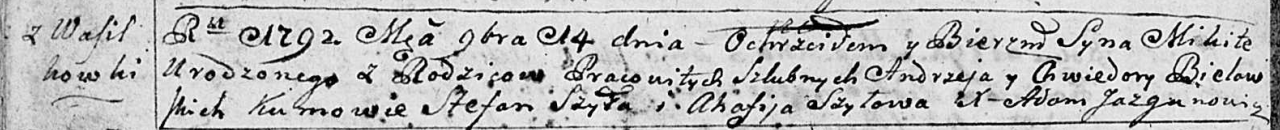 z Wasil
kowki
Ru 1792 Mca 9bra 14 dnia - Ochrzciłem y Bierzm Syna Mikitę
Urodzonego z Rodzicow Pracowitych Szlubnych Andrzeja y Chwiedory Bielaw
skich Kumowie Stefan Szyła i Ahafija Szyłowa X Adam Jazgunowicz